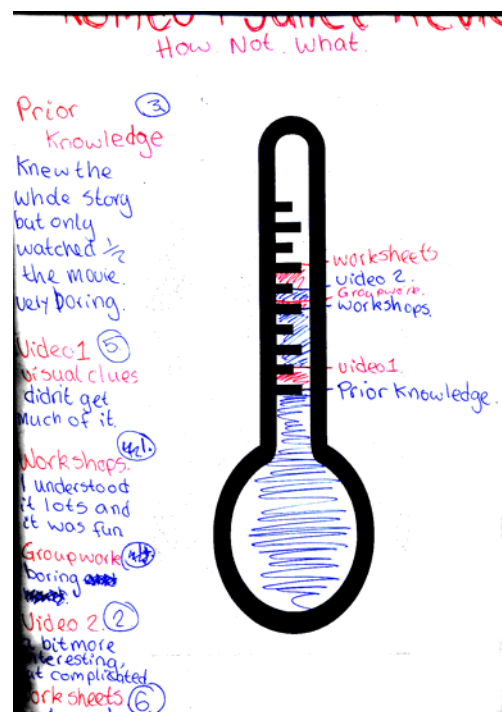 How Not What.
Prior 3
Knowledge
Knew the
whole story
but only
watched 1/2
the movie.
very boring.
Video 1 5
visual clues
didn't get
much of it.
Workshops.
I understood
it lots and
it was fun
Groupwork
boring
Video 2 2
a bit more
interesting,
but complicated
Worksheets 6
worksheets
video 2.
Groupwork.
workshops.
video 1.
Prior Knowledge.